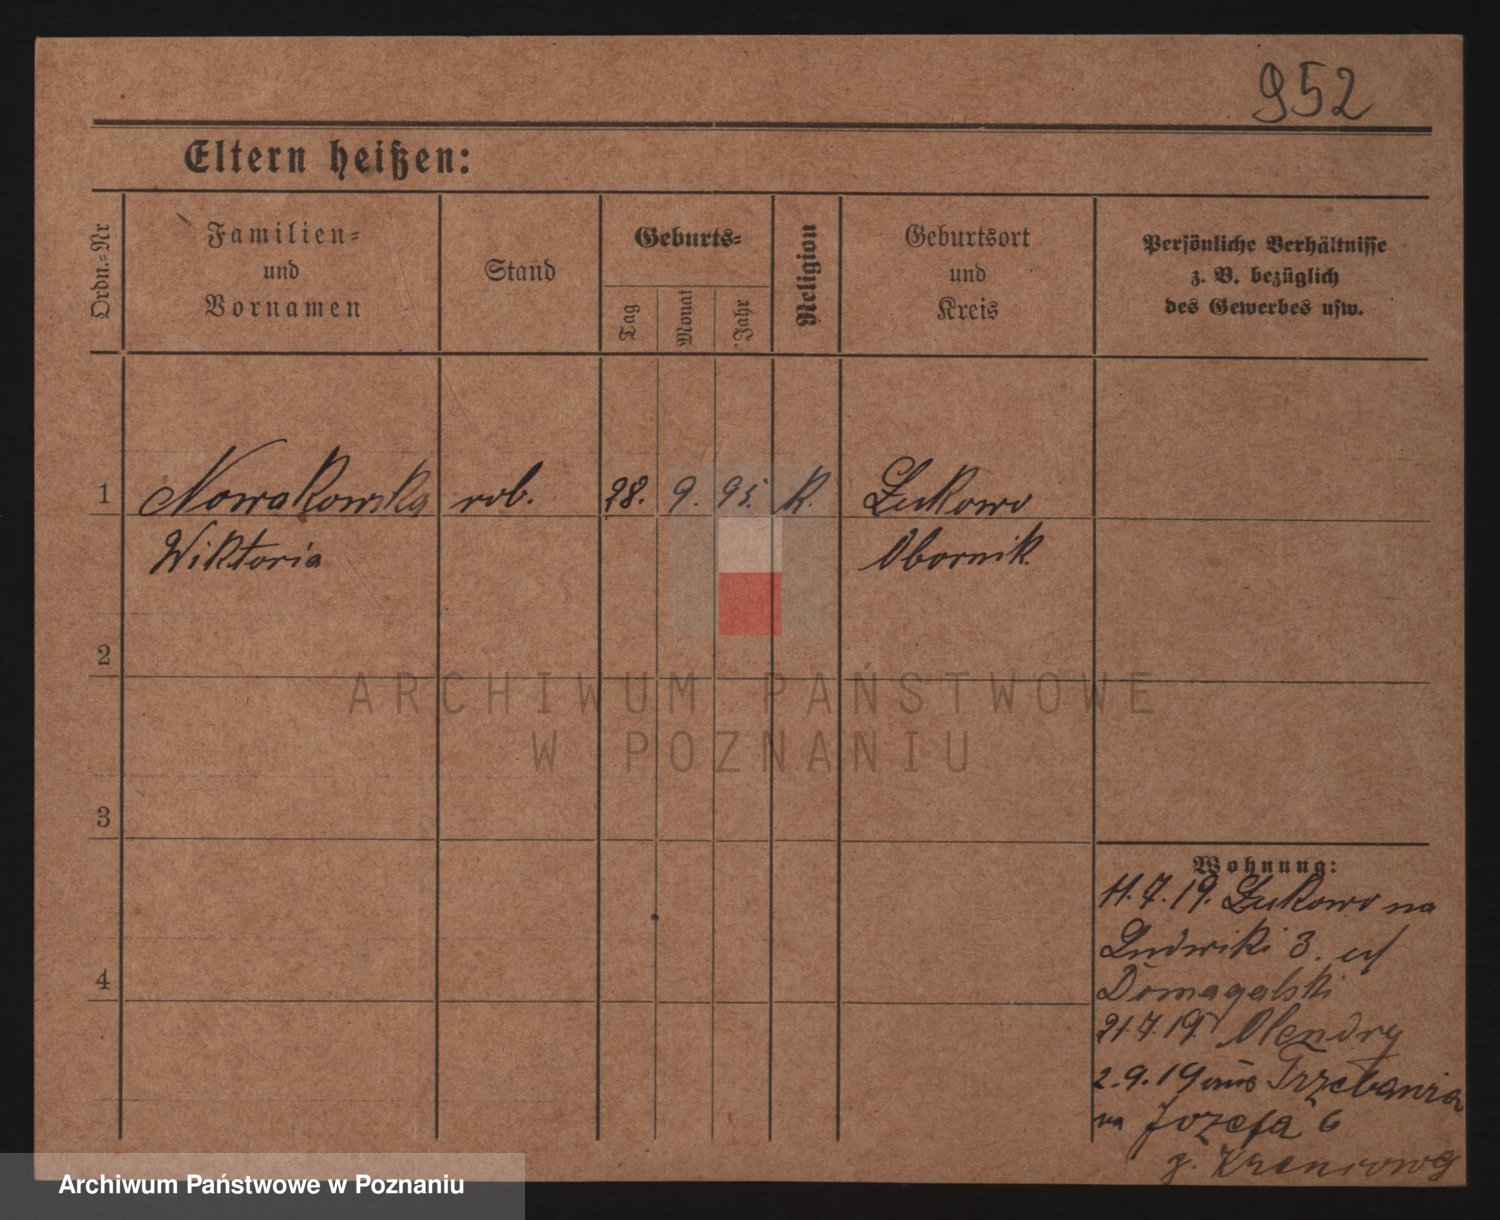 952
Eltern heißen:
Ordn.-Nr
Familien-
und
Vornamen
Stand
Geburts-
Tag
Monat
Jahr
Religion
Geburtsort
und
Kreis
Persönliche Verhältnisse
z. B. bezüglich
des Gewerbes usw.
1
Nowakowska rob. 28. 9. 95. K. Łukowo
Wiktoria Obornik
2
ARCHIWUM PAŃSTWOWE
W POZNANIU
3
Wohnung:
11.7.19. Łukowo na
Ludwiki 3.
4
Domagalski
21.7.19 Olendry
2.9.19 aus Trzebania
na Józefa 6
Archiwum Państwowe w Poznaniu